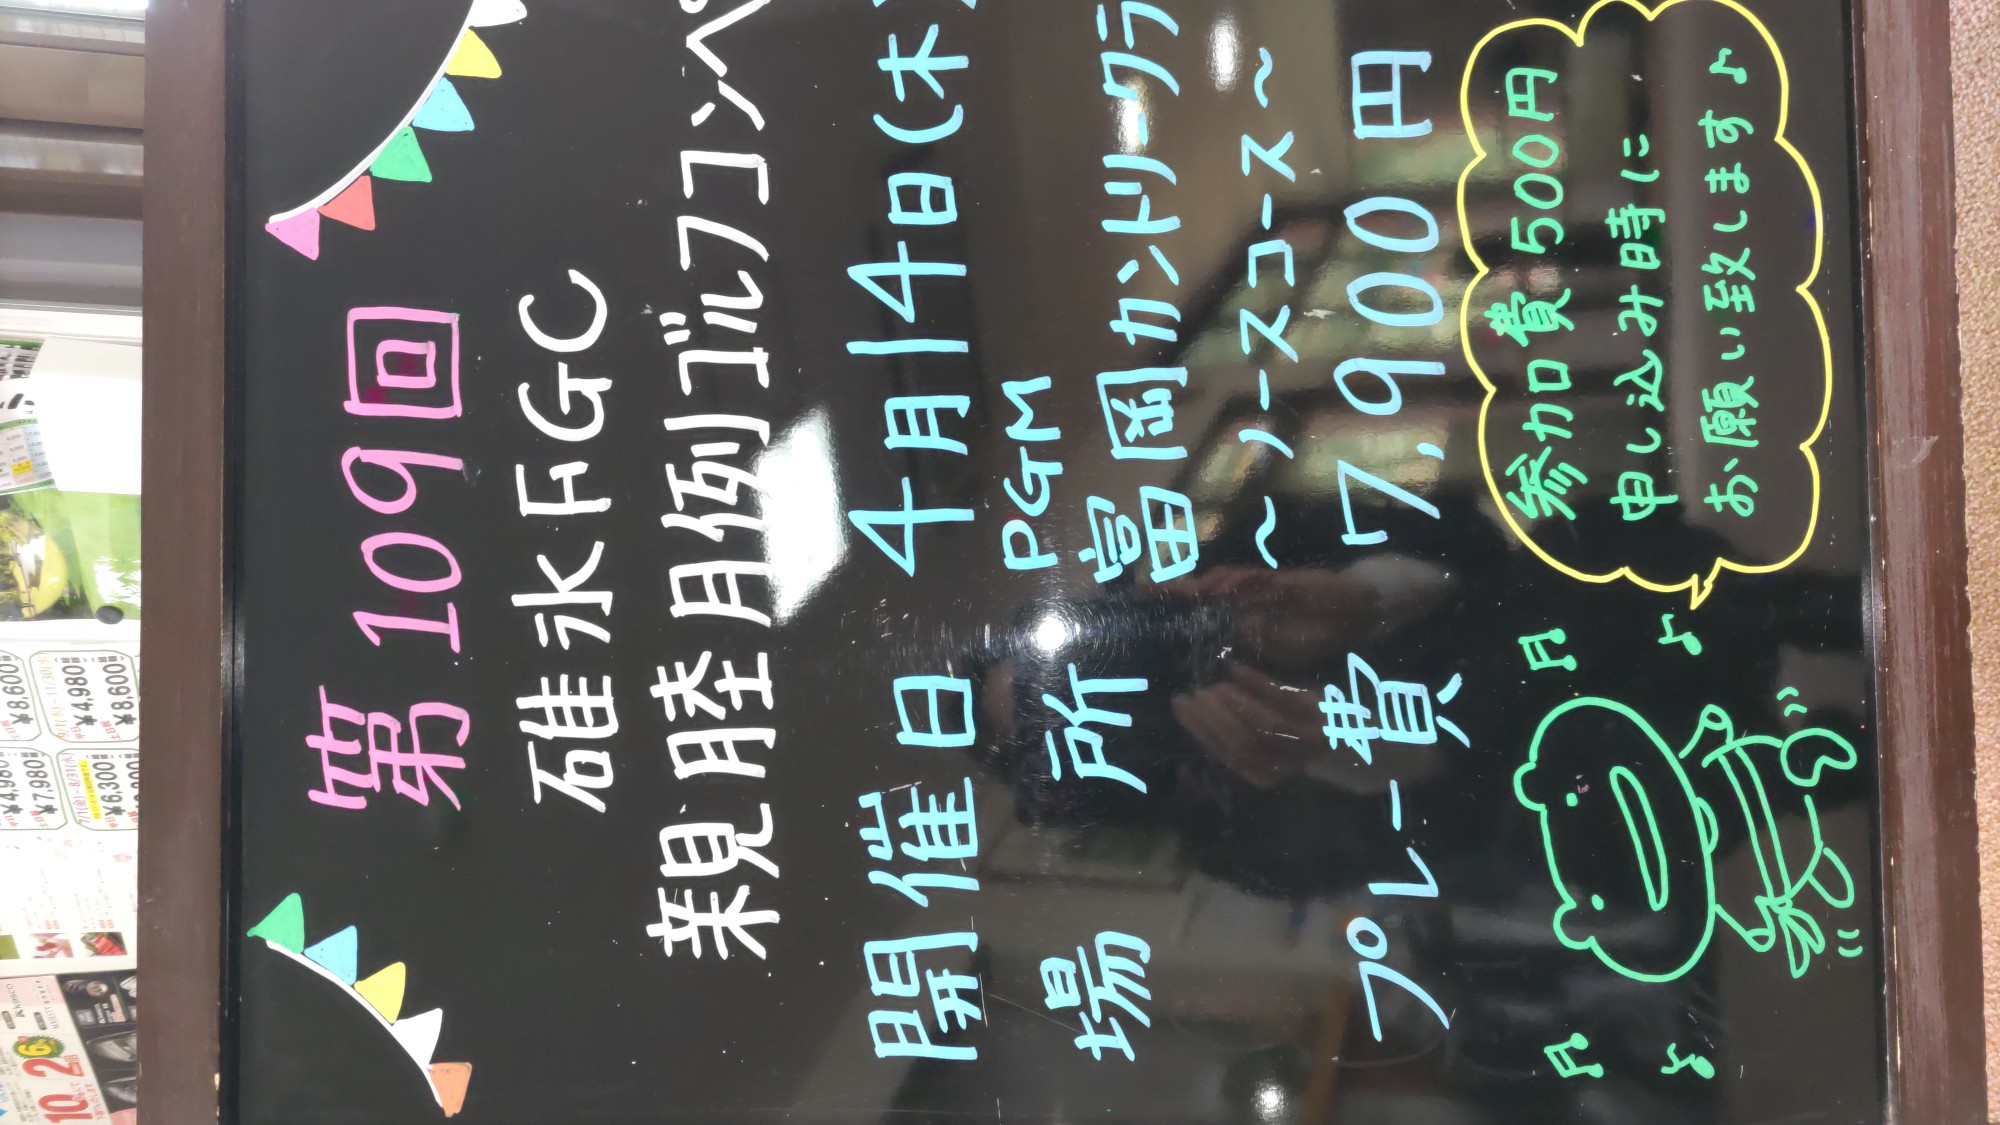 第109回
碓氷FGC
親睦月例ゴルフコンペ
開催日 4月14日(木)
場所 PGM
富岡カントリークラ
～ノースコース～
プレー費 7,900円
参加費 500円
申し込み時に
お願い致します♪
¥8,600
¥4,980
¥8,600
¥4,980
¥7,980
¥6,300